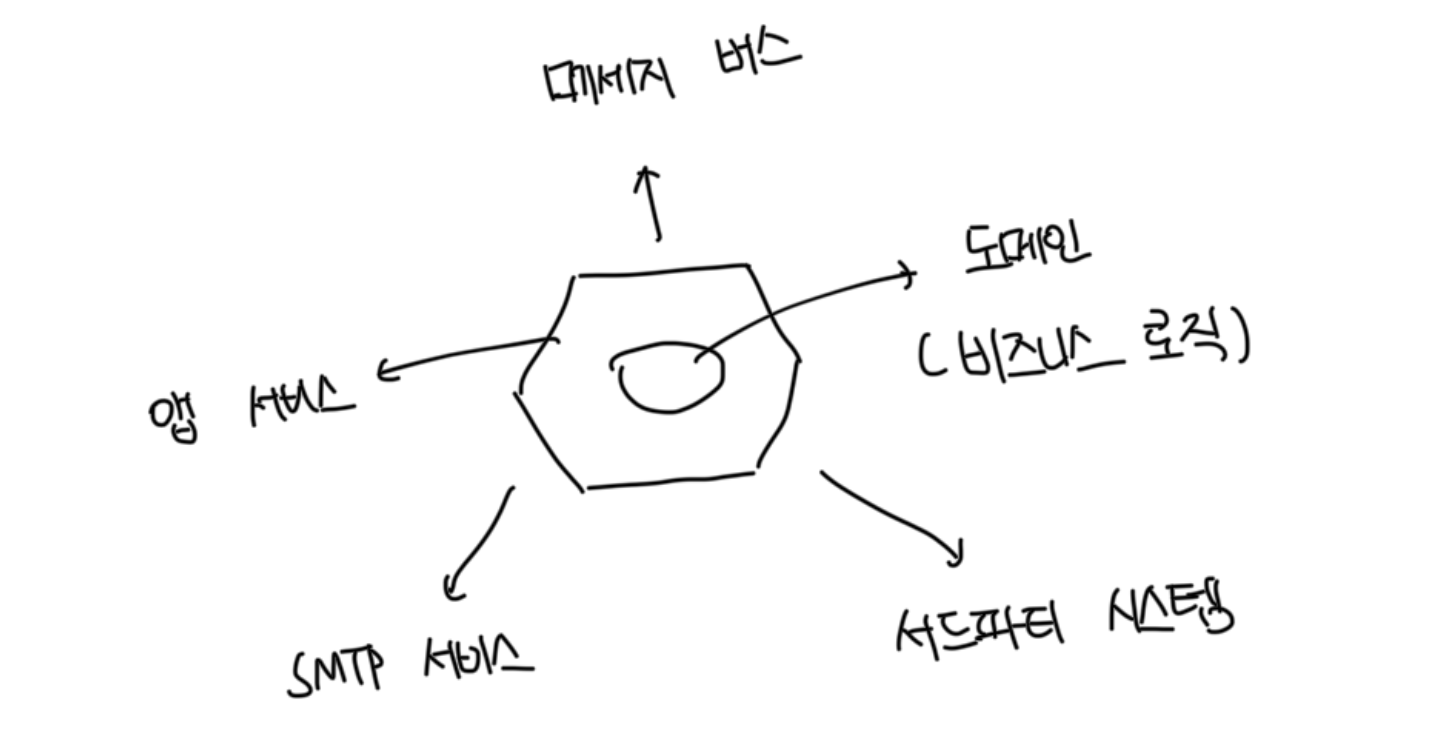 메세지 버스
도메인
(비즈니스 로직)
앱 서비스
SMTP 서비스
서드파티 시스템